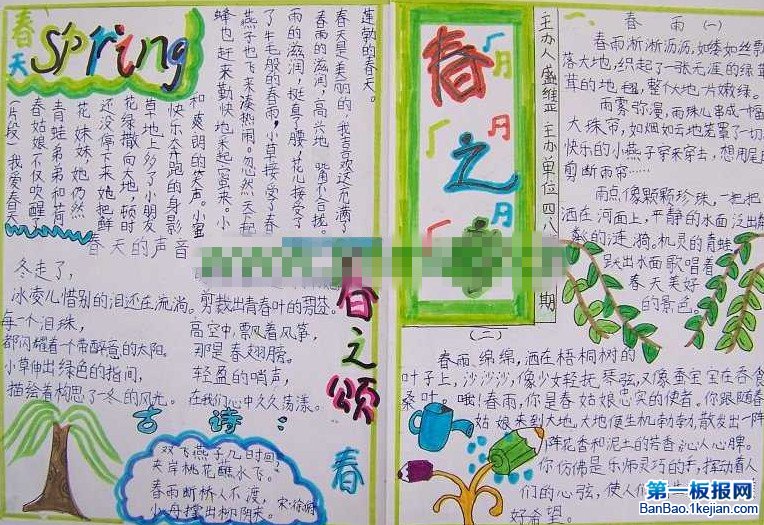 春天
Spring
蓬勃的春天。
春天是美丽的,我喜欢这充满了
春雨的滋润,高兴地
雨的滋润,挺直了腰,花儿接受了
了牛毛般的春雨,小草接受了春
燕子也飞来凑热闹。忽然天下起
蜂也赶来勤快地采起蜜来。小
和爽朗的笑声。小蜜
快乐奔跑的身影
草地上多了小朋友
花绿撒向大地,顿时
还没停下来她把鲜
花妹妹她仍然
青蛙弟弟和荷
春姑娘不仅吹醒
(片段)我爱春天
春天的声音
冬走了,
冰凌儿惜别的泪还在流淌。
每一个泪珠,
都闪耀着一个带醉意的太阳。
小草伸出绿色的指间,
描绘着构思了一冬的风光。
剪裁出青春叶的
高空中,飘风着风筝,
那是春翅膀。
轻盈的哨声,
在我们心中久久荡漾。
春之颂
春
古诗:
双飞燕子几时回?
夹岸桃花蘸水下。
春雨断桥人不渡,
小舟撑出柳阴来。
宋·徐俯
春之
主办人 盛维
主办单位四八
期
一、春雨(一)
春雨淅淅沥沥,如缕如丝飘
落大地,织起了一张无涯的绿
茸的地毯,整个大地一片嫩绿。
雨雾弥漫,雨珠儿串成一幅
大珠帘,如烟如云地笼罩了一切
快乐的小燕子穿来穿去,想用尾
剪断雨帘……
雨点像颗颗珍珠,一把把
洒在河面上,平静的水面泛出
的涟漪。机灵的青蛙
跃出水面歌唱着
春天美好
的景色。
(二)
春雨绵绵,洒在梧桐树的
叶子上,沙沙沙,像少女轻抚琴弦,又像蚕宝宝在吞食
桑叶。哦!春雨,你是春姑娘忠实的使者。你跟随春
姑娘来到大地,大地便生机勃勃,散发出一阵
阵花香和泥土的芳香沁人心脾。
你仿佛是乐师灵巧的手,挥动着人
们的心弦,使人们
好希望。
第一板报网
BanBao.1kejian.com